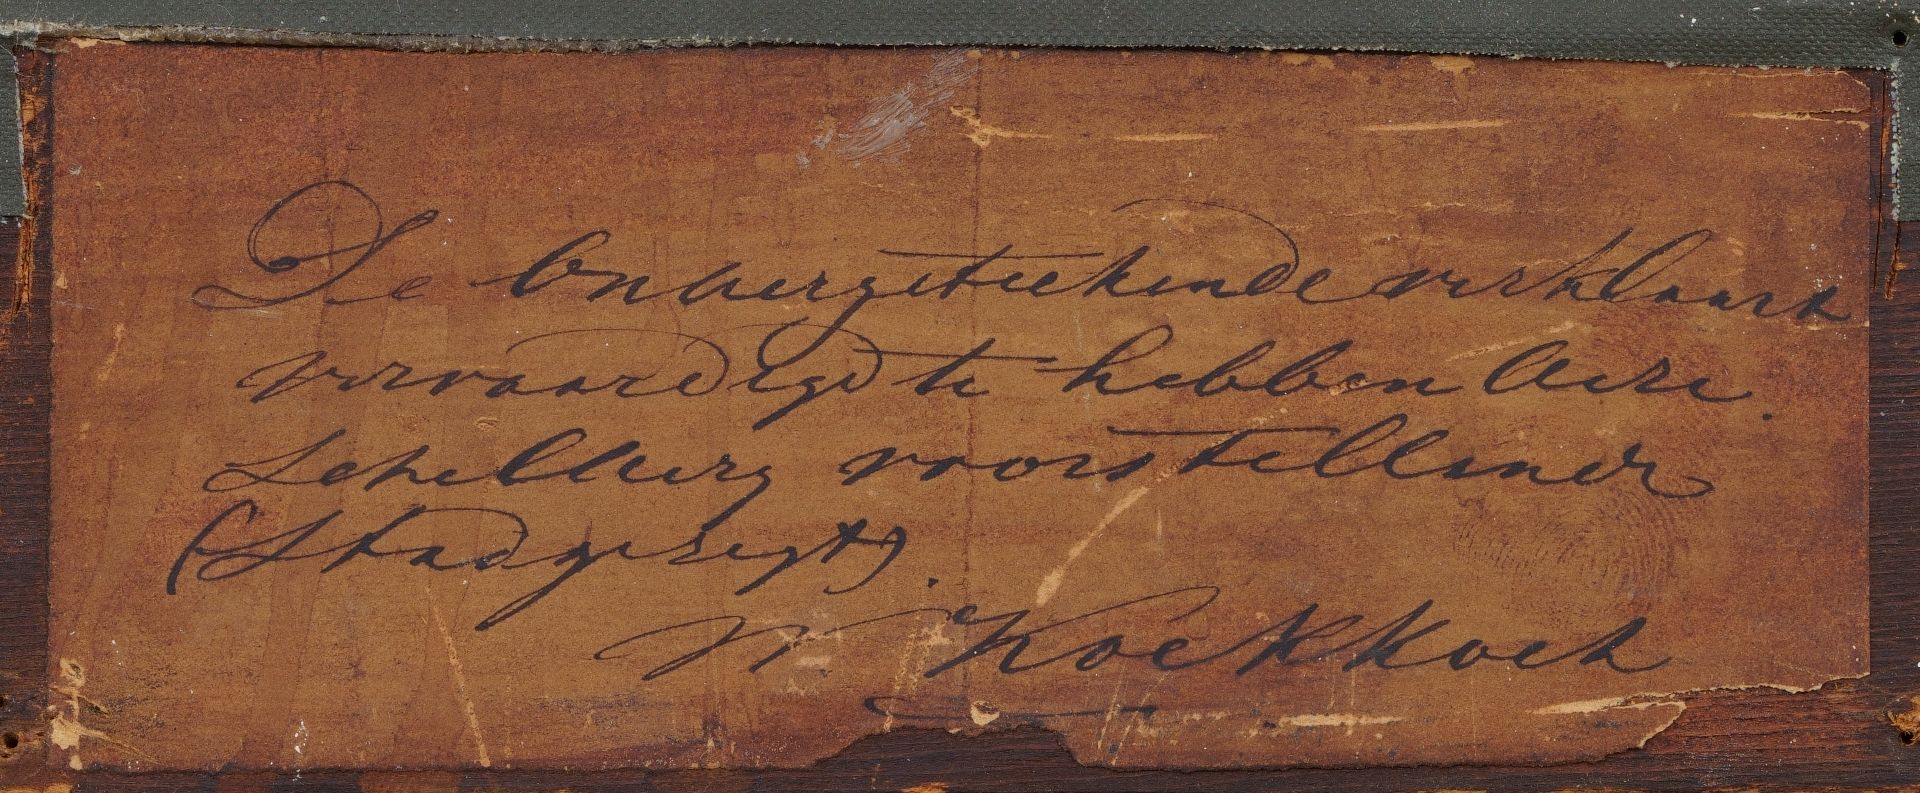 De Ondergeteekende verklaart
vervaardigd te hebben deze
Schilderij voorstellende
(Stadgezigt).
W. Koekkoek